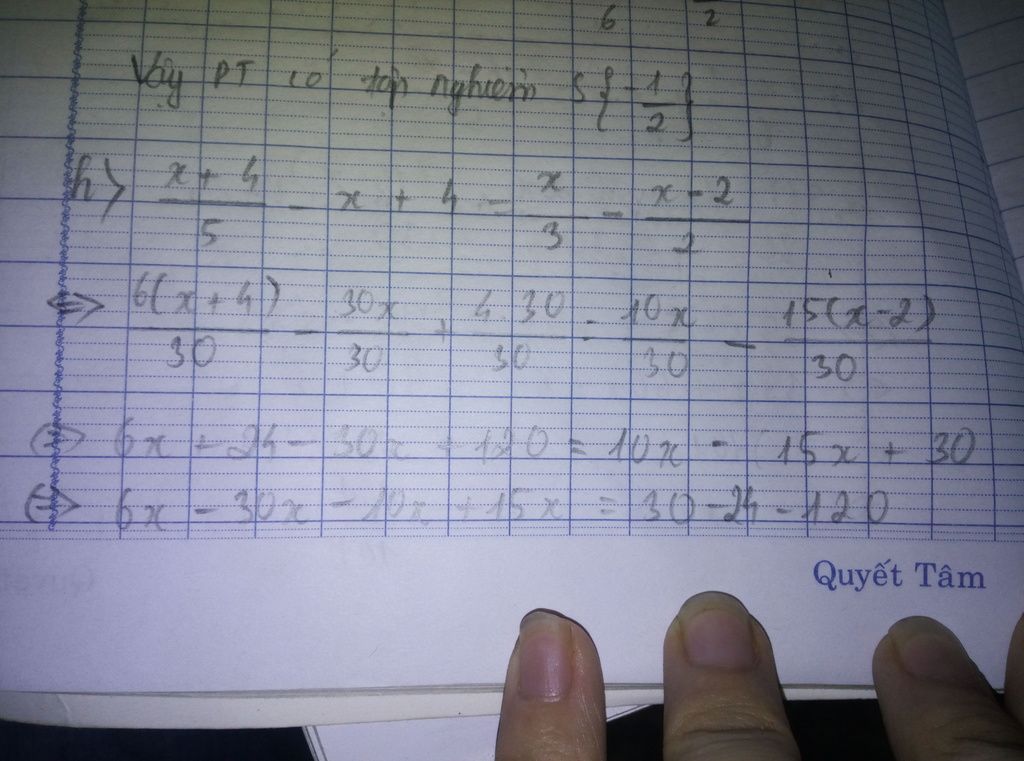 6 2
Vậy PT có tập nghiệm S{-1/2}
h) (x + 4)/5 - x + 4 = x/3 - (x - 2)/2
<=> 6(x + 4)/30 - 30x/30 + 4.30/30 = 10x/30 - 15(x - 2)/30
<=> 6x + 24 - 30x + 120 = 10x - 15x + 30
<=> 6x - 30x - 10x + 15x = 30 - 24 - 120
Quyết Tâm